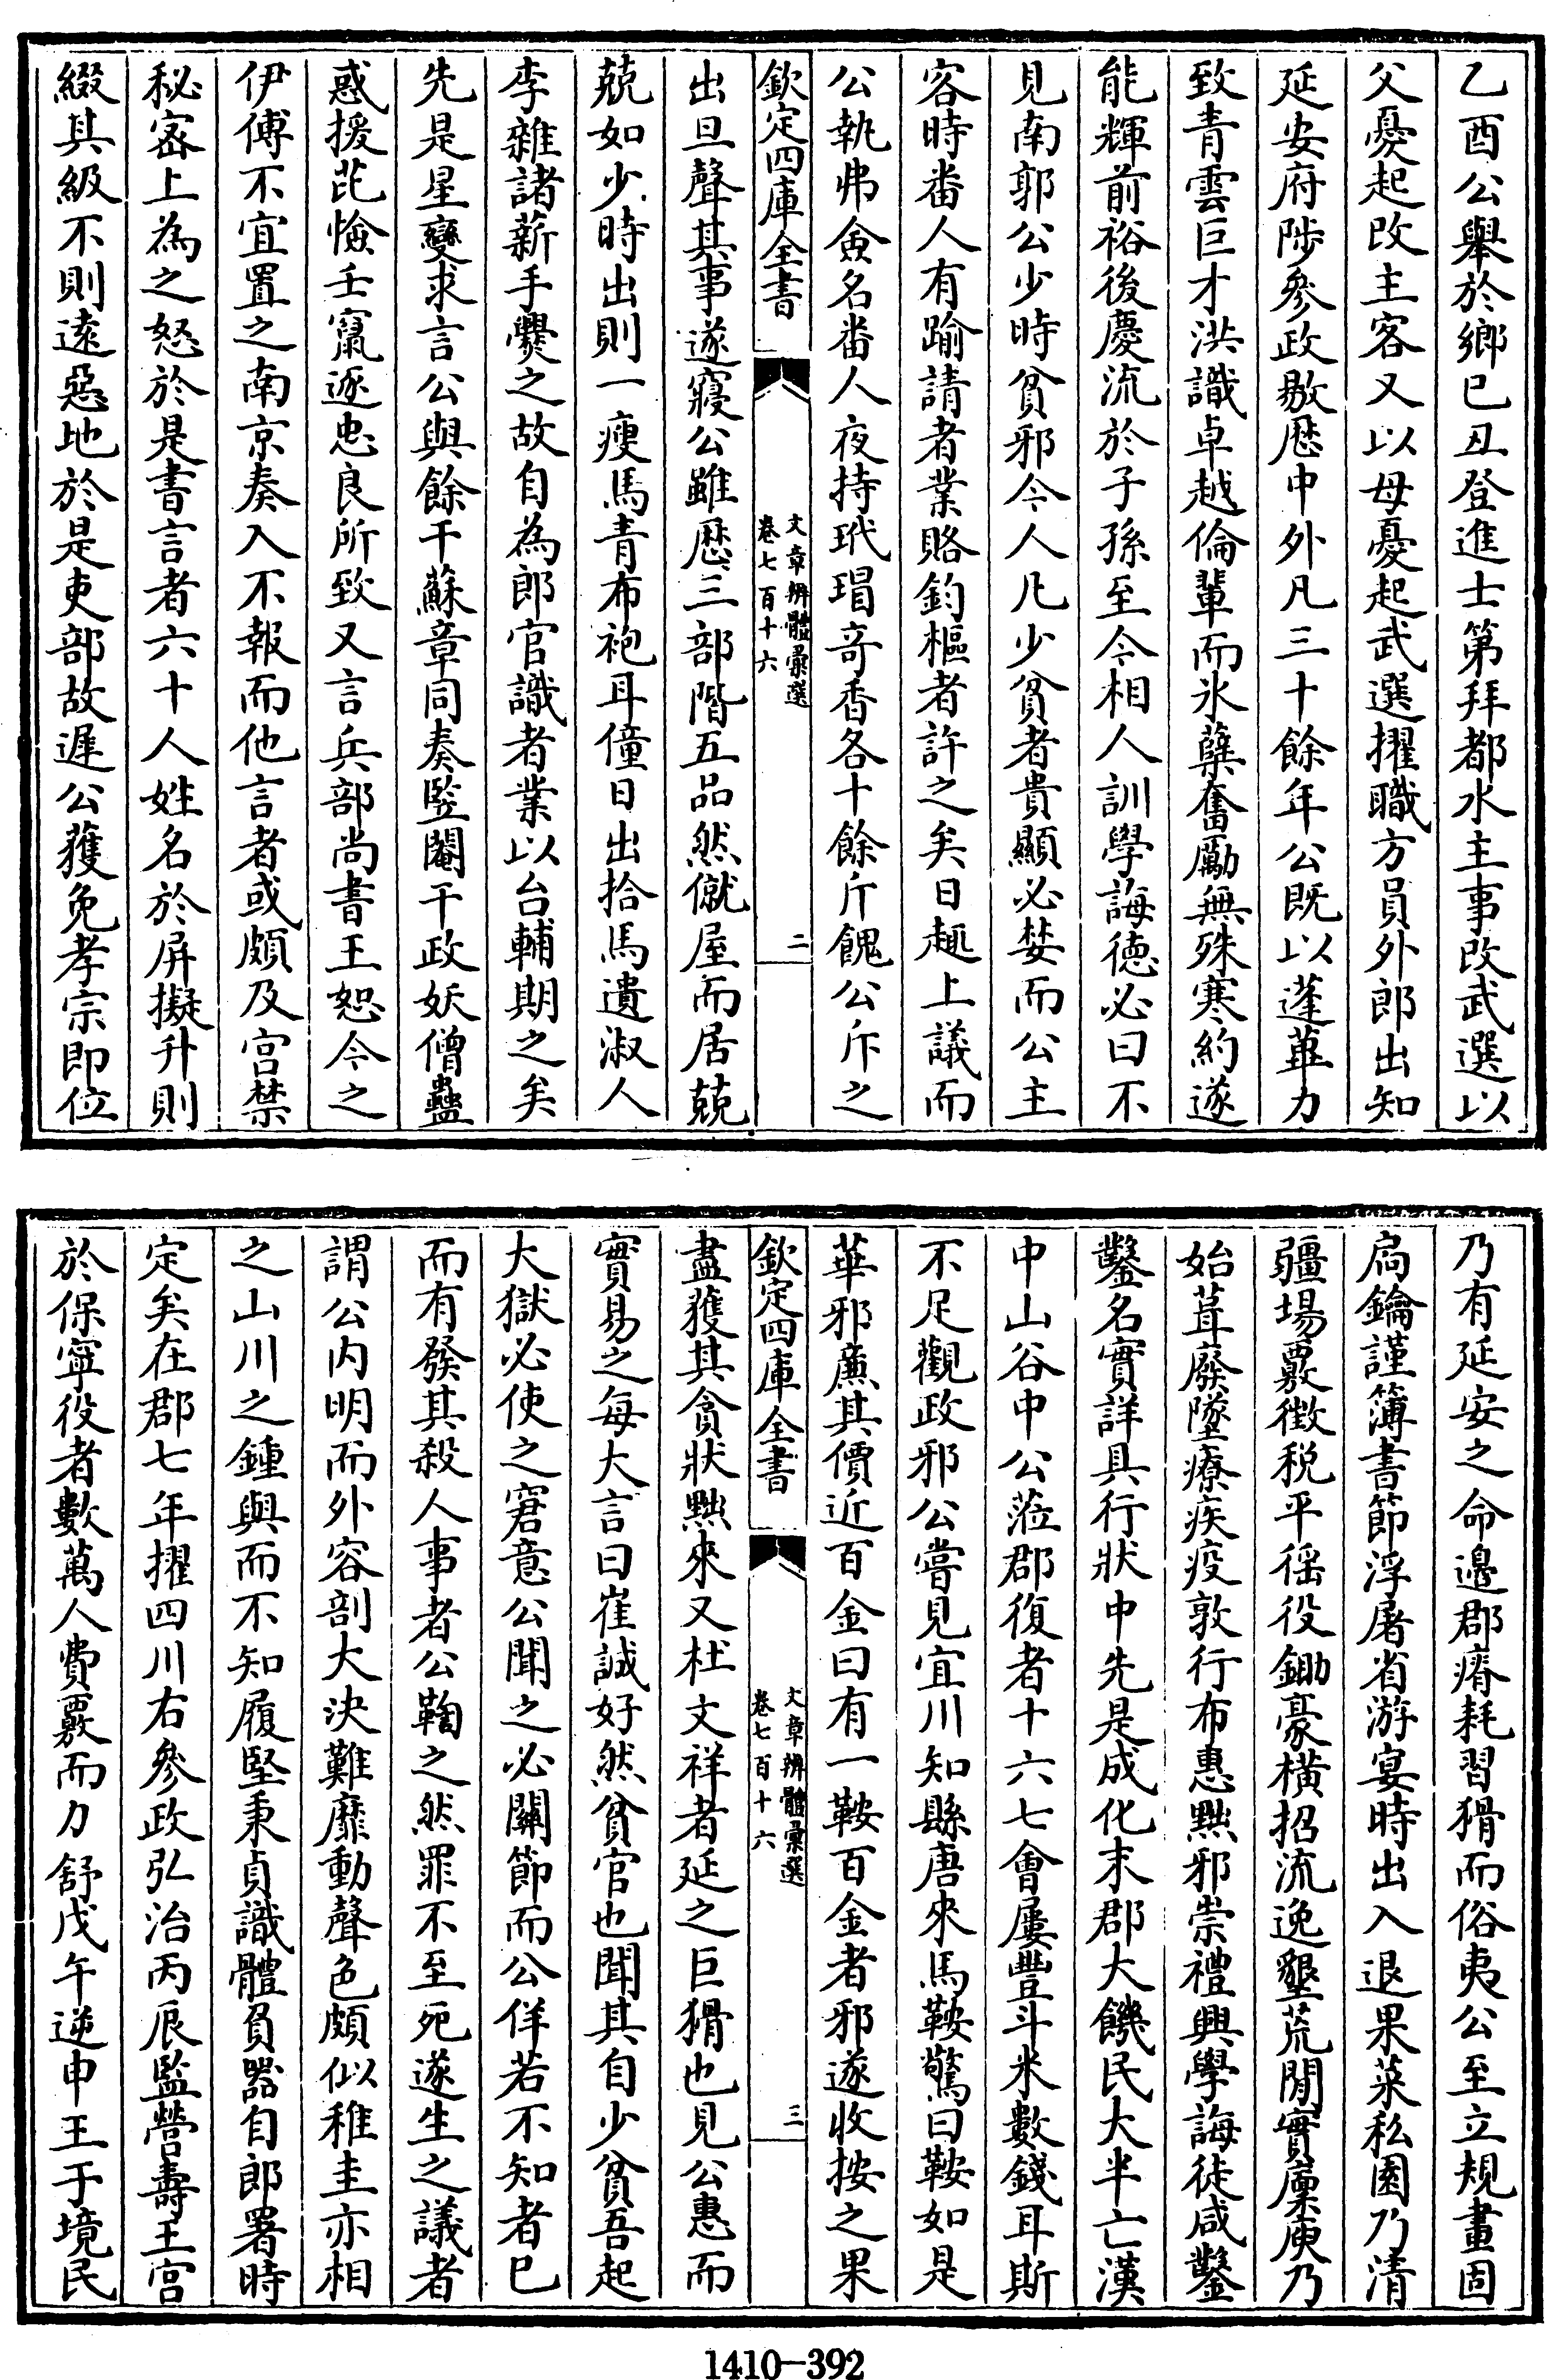 乙酉公舉於鄉已丑登進士第拜都水主事改武選以
父憂起改主客又以母憂起武選擢職方員外郎出知
延安府陟參政敭歴中外凡三十餘年公既以蓬蓽力
致青雲巨才洪識卓越倫輩而氷蘗奮勵無殊寒約遂
能輝前裕後慶流於子孫至今相人訓學誨徳必曰不
見南郭公少時貧邪今人凡少貧者貴顯必婪而公主
客時番人有踰請者業賂鈞樞者許之矣日趣上議而
公執弗僉名番人夜持玳瑁竒香各十餘斤餽公斥之
欽定四庫全書
文章辨體彚選
卷七百十六
二
出旦聲其事遂寢公雖歴三部階五品然僦屋而居兢
兢如少時出則一瘦馬青布袍耳僮日出拾馬遺淑人
李雜諸薪手爨之故自為郎官識者業以台輔期之矣
先是星變求言公與餘干蘇章同奏竪閹干政妖僧蠱
惑援茈憸壬竄逐忠良所致又言兵部尚書王恕今之
伊傅不宜置之南京奏入不報而他言者或頗及宫禁
秘宻上為之怒於是書言者六十人姓名於屏擬升則
綴其級不則逺惡地於是吏部故遲公獲免孝宗即位
乃有延安之命邊郡瘠耗習猾而俗夷公至立規畫固
扃鑰謹簿書節浮屠省游宴時出入退果菜私園乃清
疆場覈徴税平徭役鋤豪横招流逸墾荒閒實廩庾乃
始葺廢墜療疾疫敦行布惠黜邪崇禮興學誨徒咸鑿
鑿名實詳具行狀中先是成化末郡大饑民大半亡漢
中山谷中公蒞郡復者十六七會屢豐斗米數錢耳斯
不足觀政邪公嘗見宜川知縣唐來馬鞍驚曰鞍如是
華邪廉其價近百金曰有一鞍百金者邪遂收按之果
欽定四庫全書
文章辨體彚選
卷七百十六
三
盡獲其貪狀黜來又杜文祥者延之巨猾也見公惠而
實易之每大言曰崔誠好然貧官也聞其自少貧吾起
大獄必使之窘意公聞之必關節而公佯若不知者巳
而有發其殺人事者公鞫之然罪不至死遂生之議者
謂公内明而外容剖大決難靡動聲色頗似稚圭亦相
之山川之鍾與而不知履堅秉貞識體負噐自郎署時
定矣在郡七年擢四川右參政弘治丙辰監營壽王宫
於保寧役者數萬人費覈而力舒戊午逆申王于境民